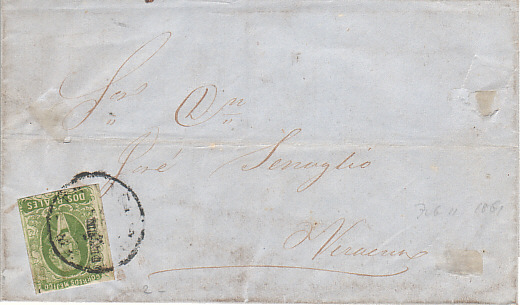 Sor Dn
José Senuglio
Veracruz
Feb 11 1861
2-
DOS REALES
CORREOS MEJICO